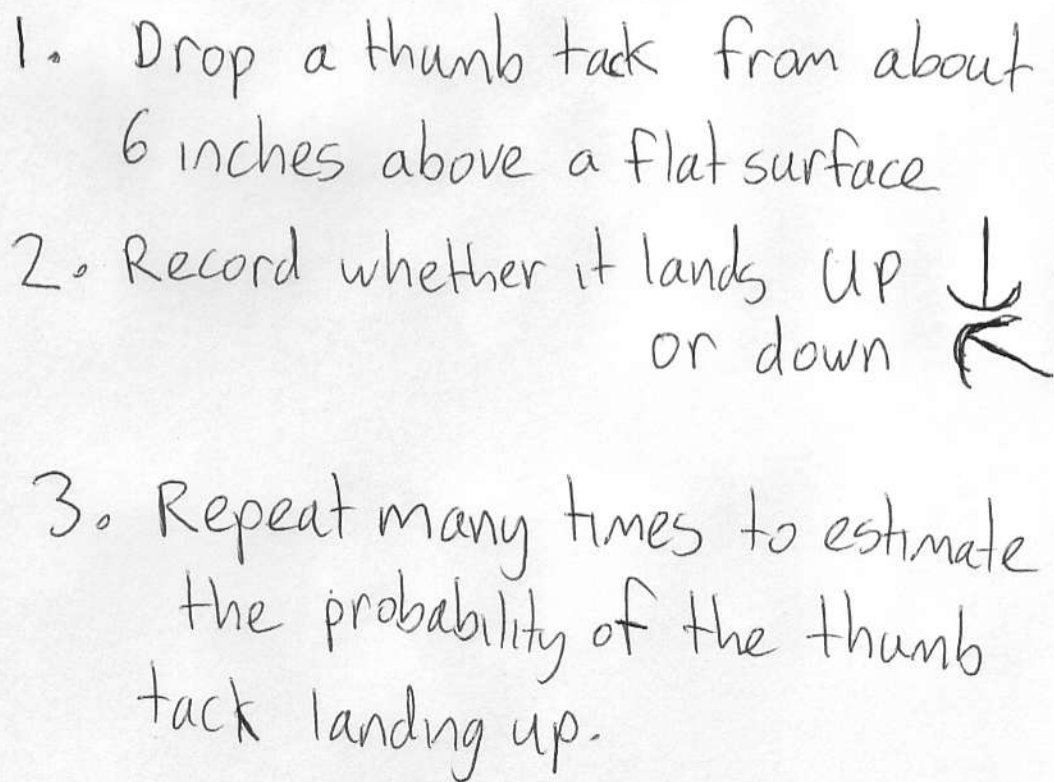 1. Drop a thumb tack from about
6 inches above a flat surface
2. Record whether it lands up
or down
3. Repeat many times to estimate
the probability of the thumb
tack landing up.